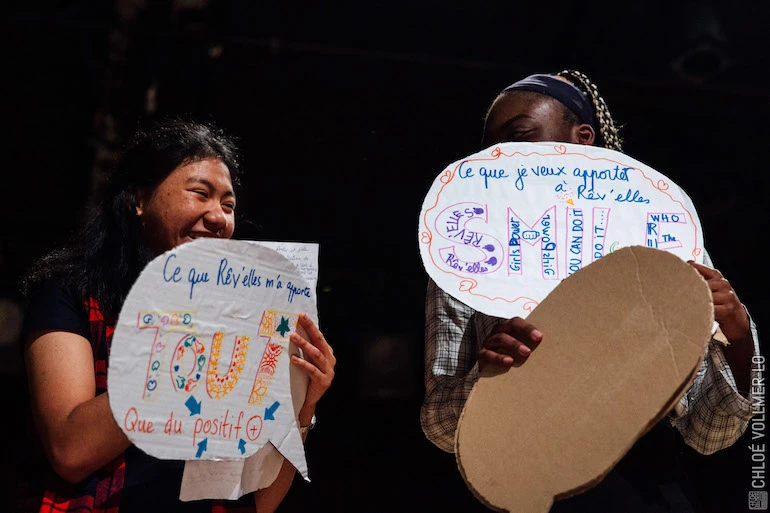 Ce que Rêv'elles m'a apporté
TOUT
Que du positif +
Ce que je veux apporter
à Rêv'elles
SMILE
RÊV'ELLES
RÊV'ELLES
Rêv'elles
Girls Power
YOU CAN DO IT
DO IT...
WHO
The
CHLOÉ VOLLMER-LO